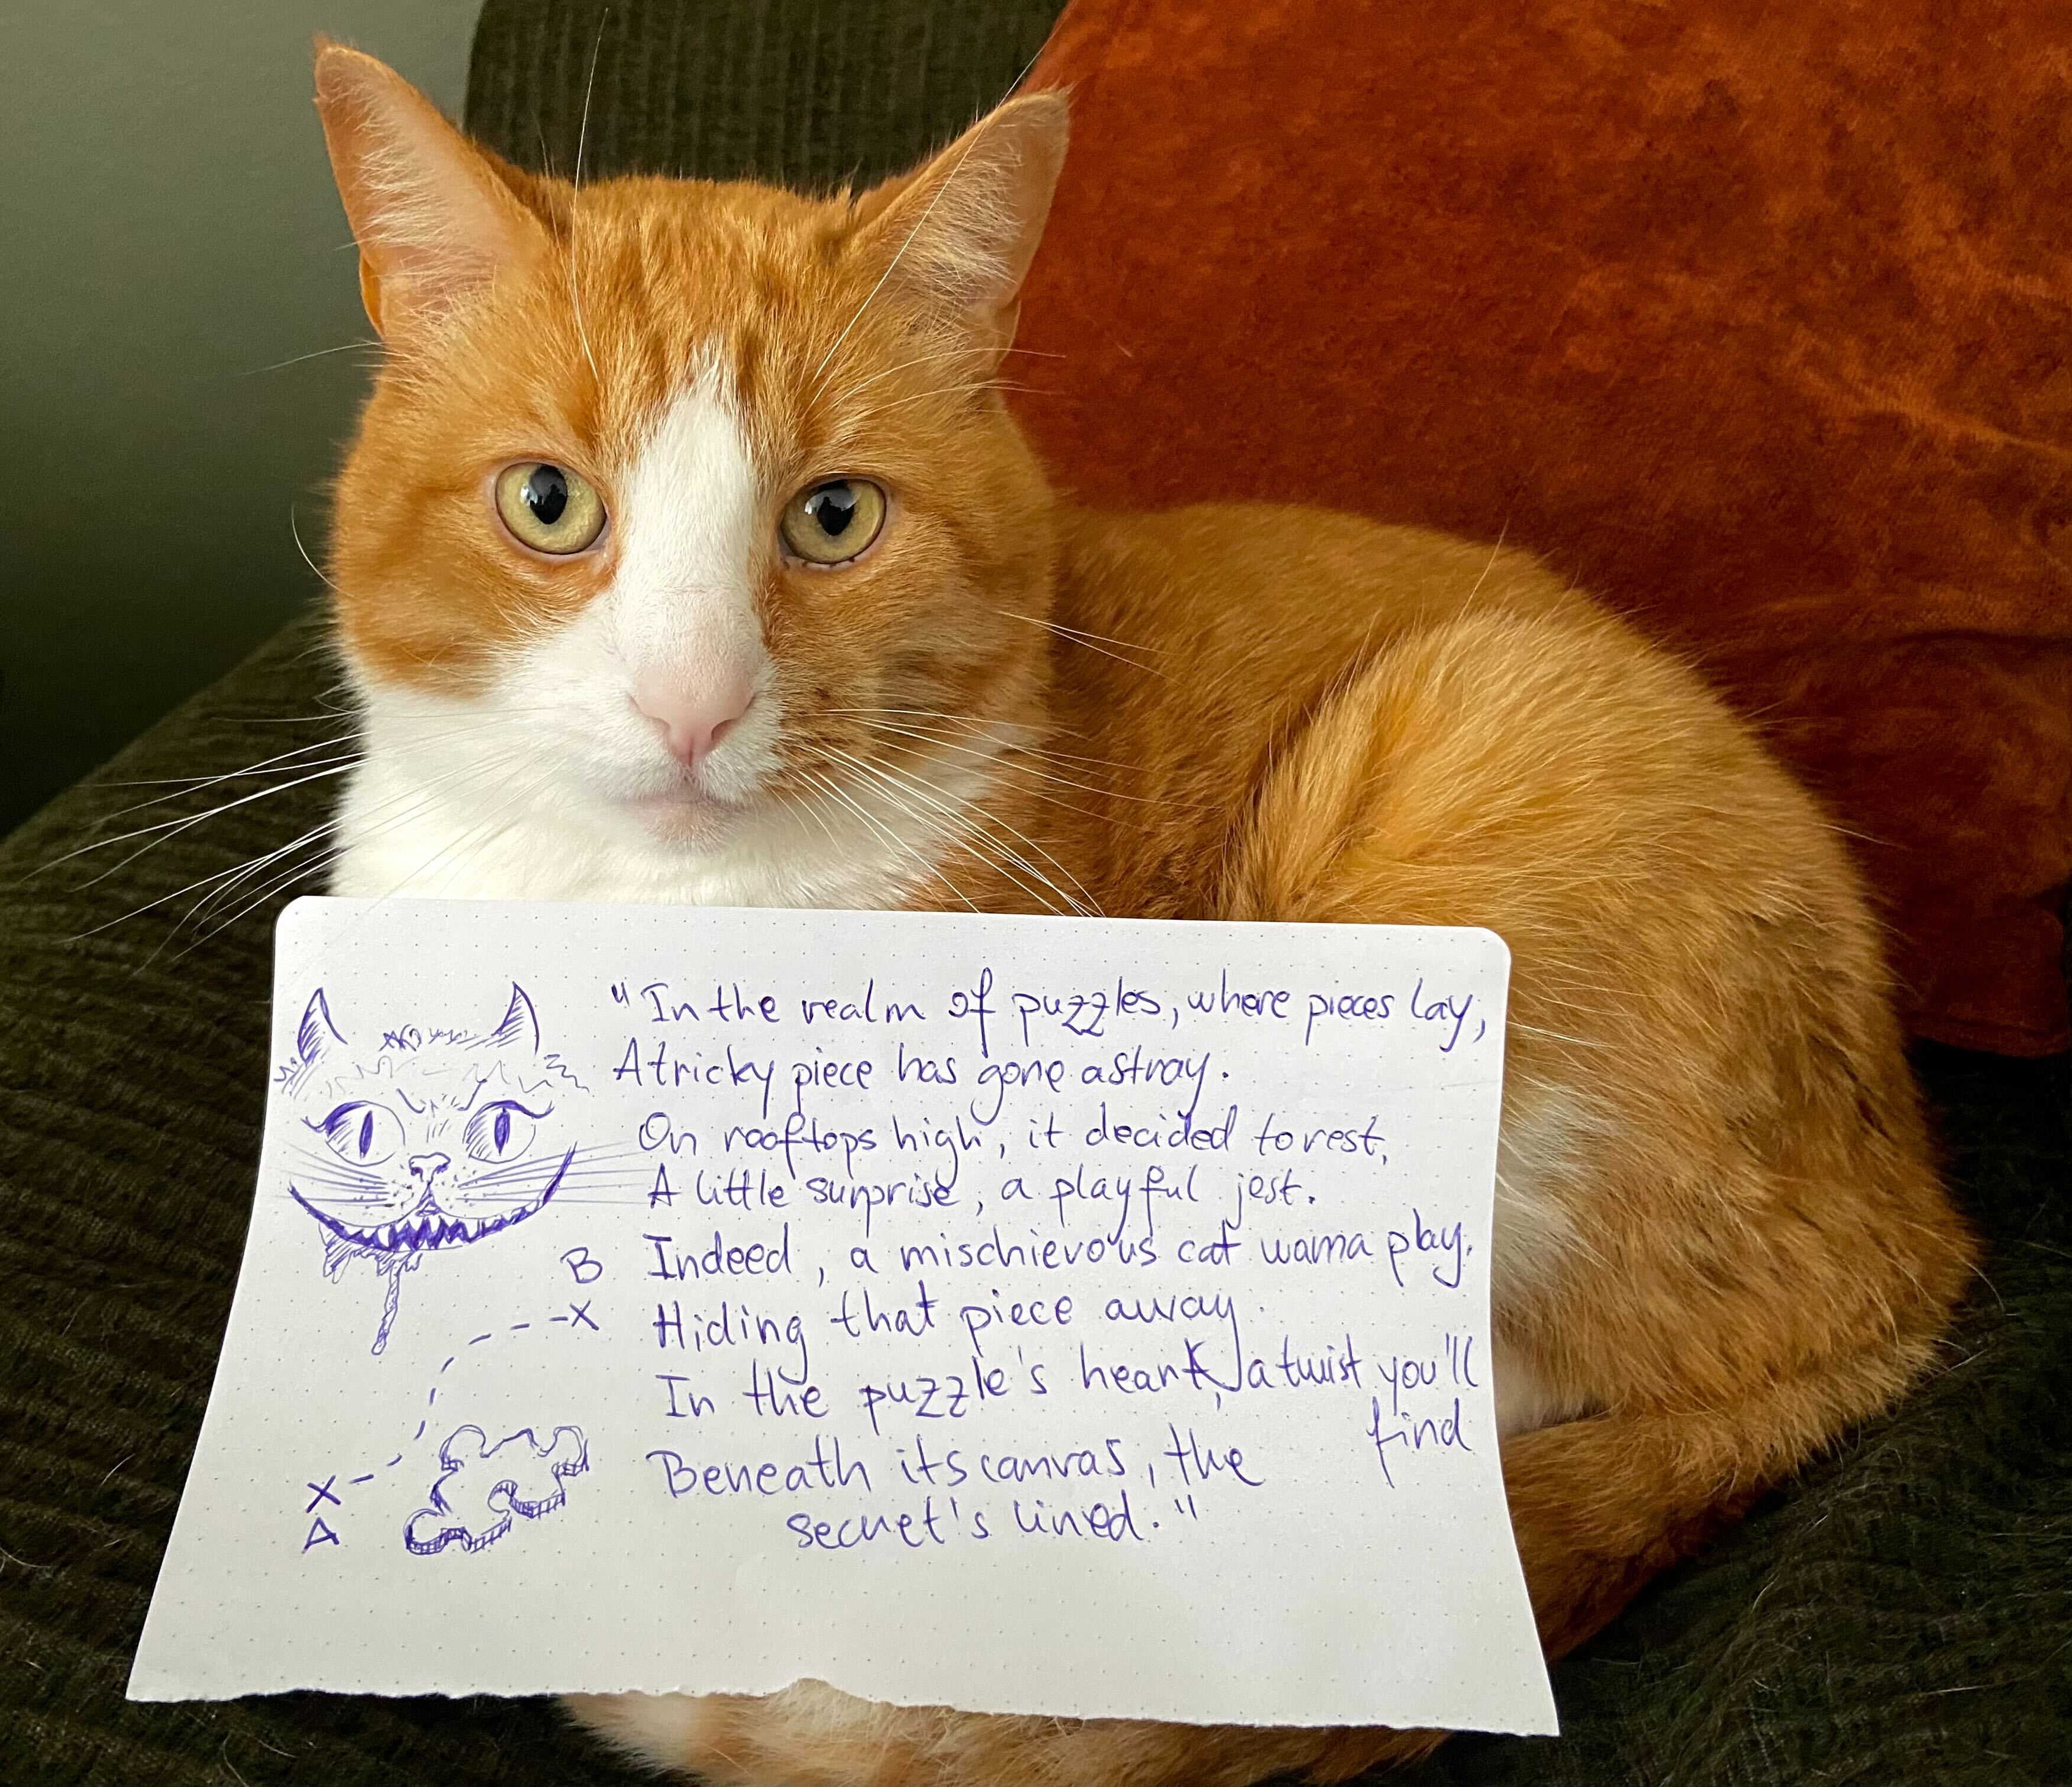 "In the realm of puzzles, where pieces lay,
A tricky piece has gone astray.
On rooftops high, it decided to rest,
A little surprise, a playful jest.
B
Indeed, a mischievous cat wanna play.
X
Hiding that piece away.
In the puzzle's heart, a twist you'll
find
Beneath its canvas, the
secret's lined."
X
A